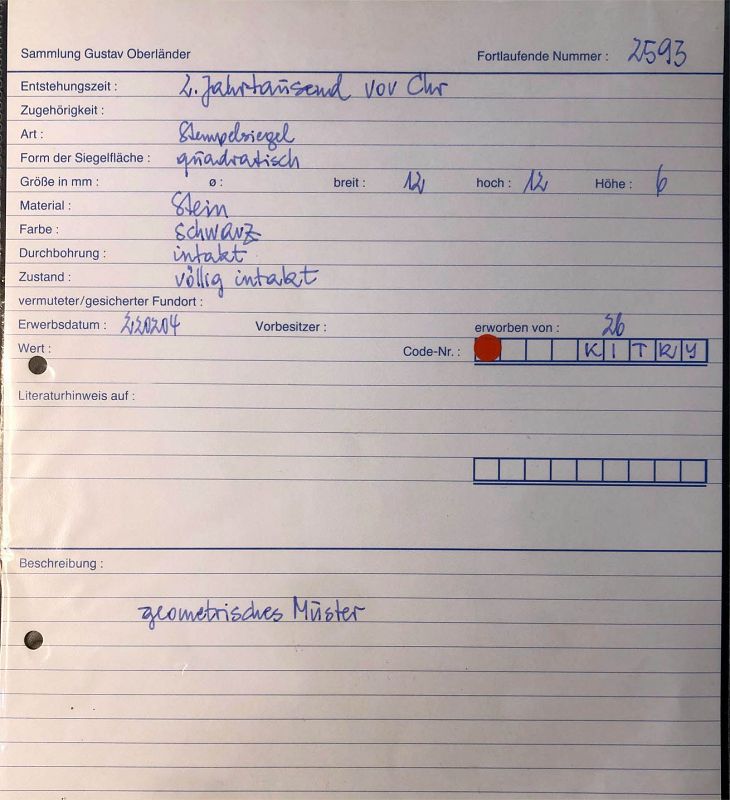 Sammlung Gustav Oberländer Fortlaufende Nummer : 2593
Entstehungszeit : 2. Jahrtausend vor Chr
Zugehörigkeit :
Art : Stempelsiegel
Form der Siegelfläche : quadratisch
Größe in mm : ø : breit : 12 hoch : 12 Höhe : 6
Material : Stein
Farbe : schwarz
Durchbohrung : intakt
Zustand : völlig intakt
vermuteter/gesicherter Fundort :
Erwerbsdatum : 220204 Vorbesitzer : erworben von : 26
Wert : Code-Nr. : K I T R Y
Literaturhinweis auf :
Beschreibung :
geometrisches Muster